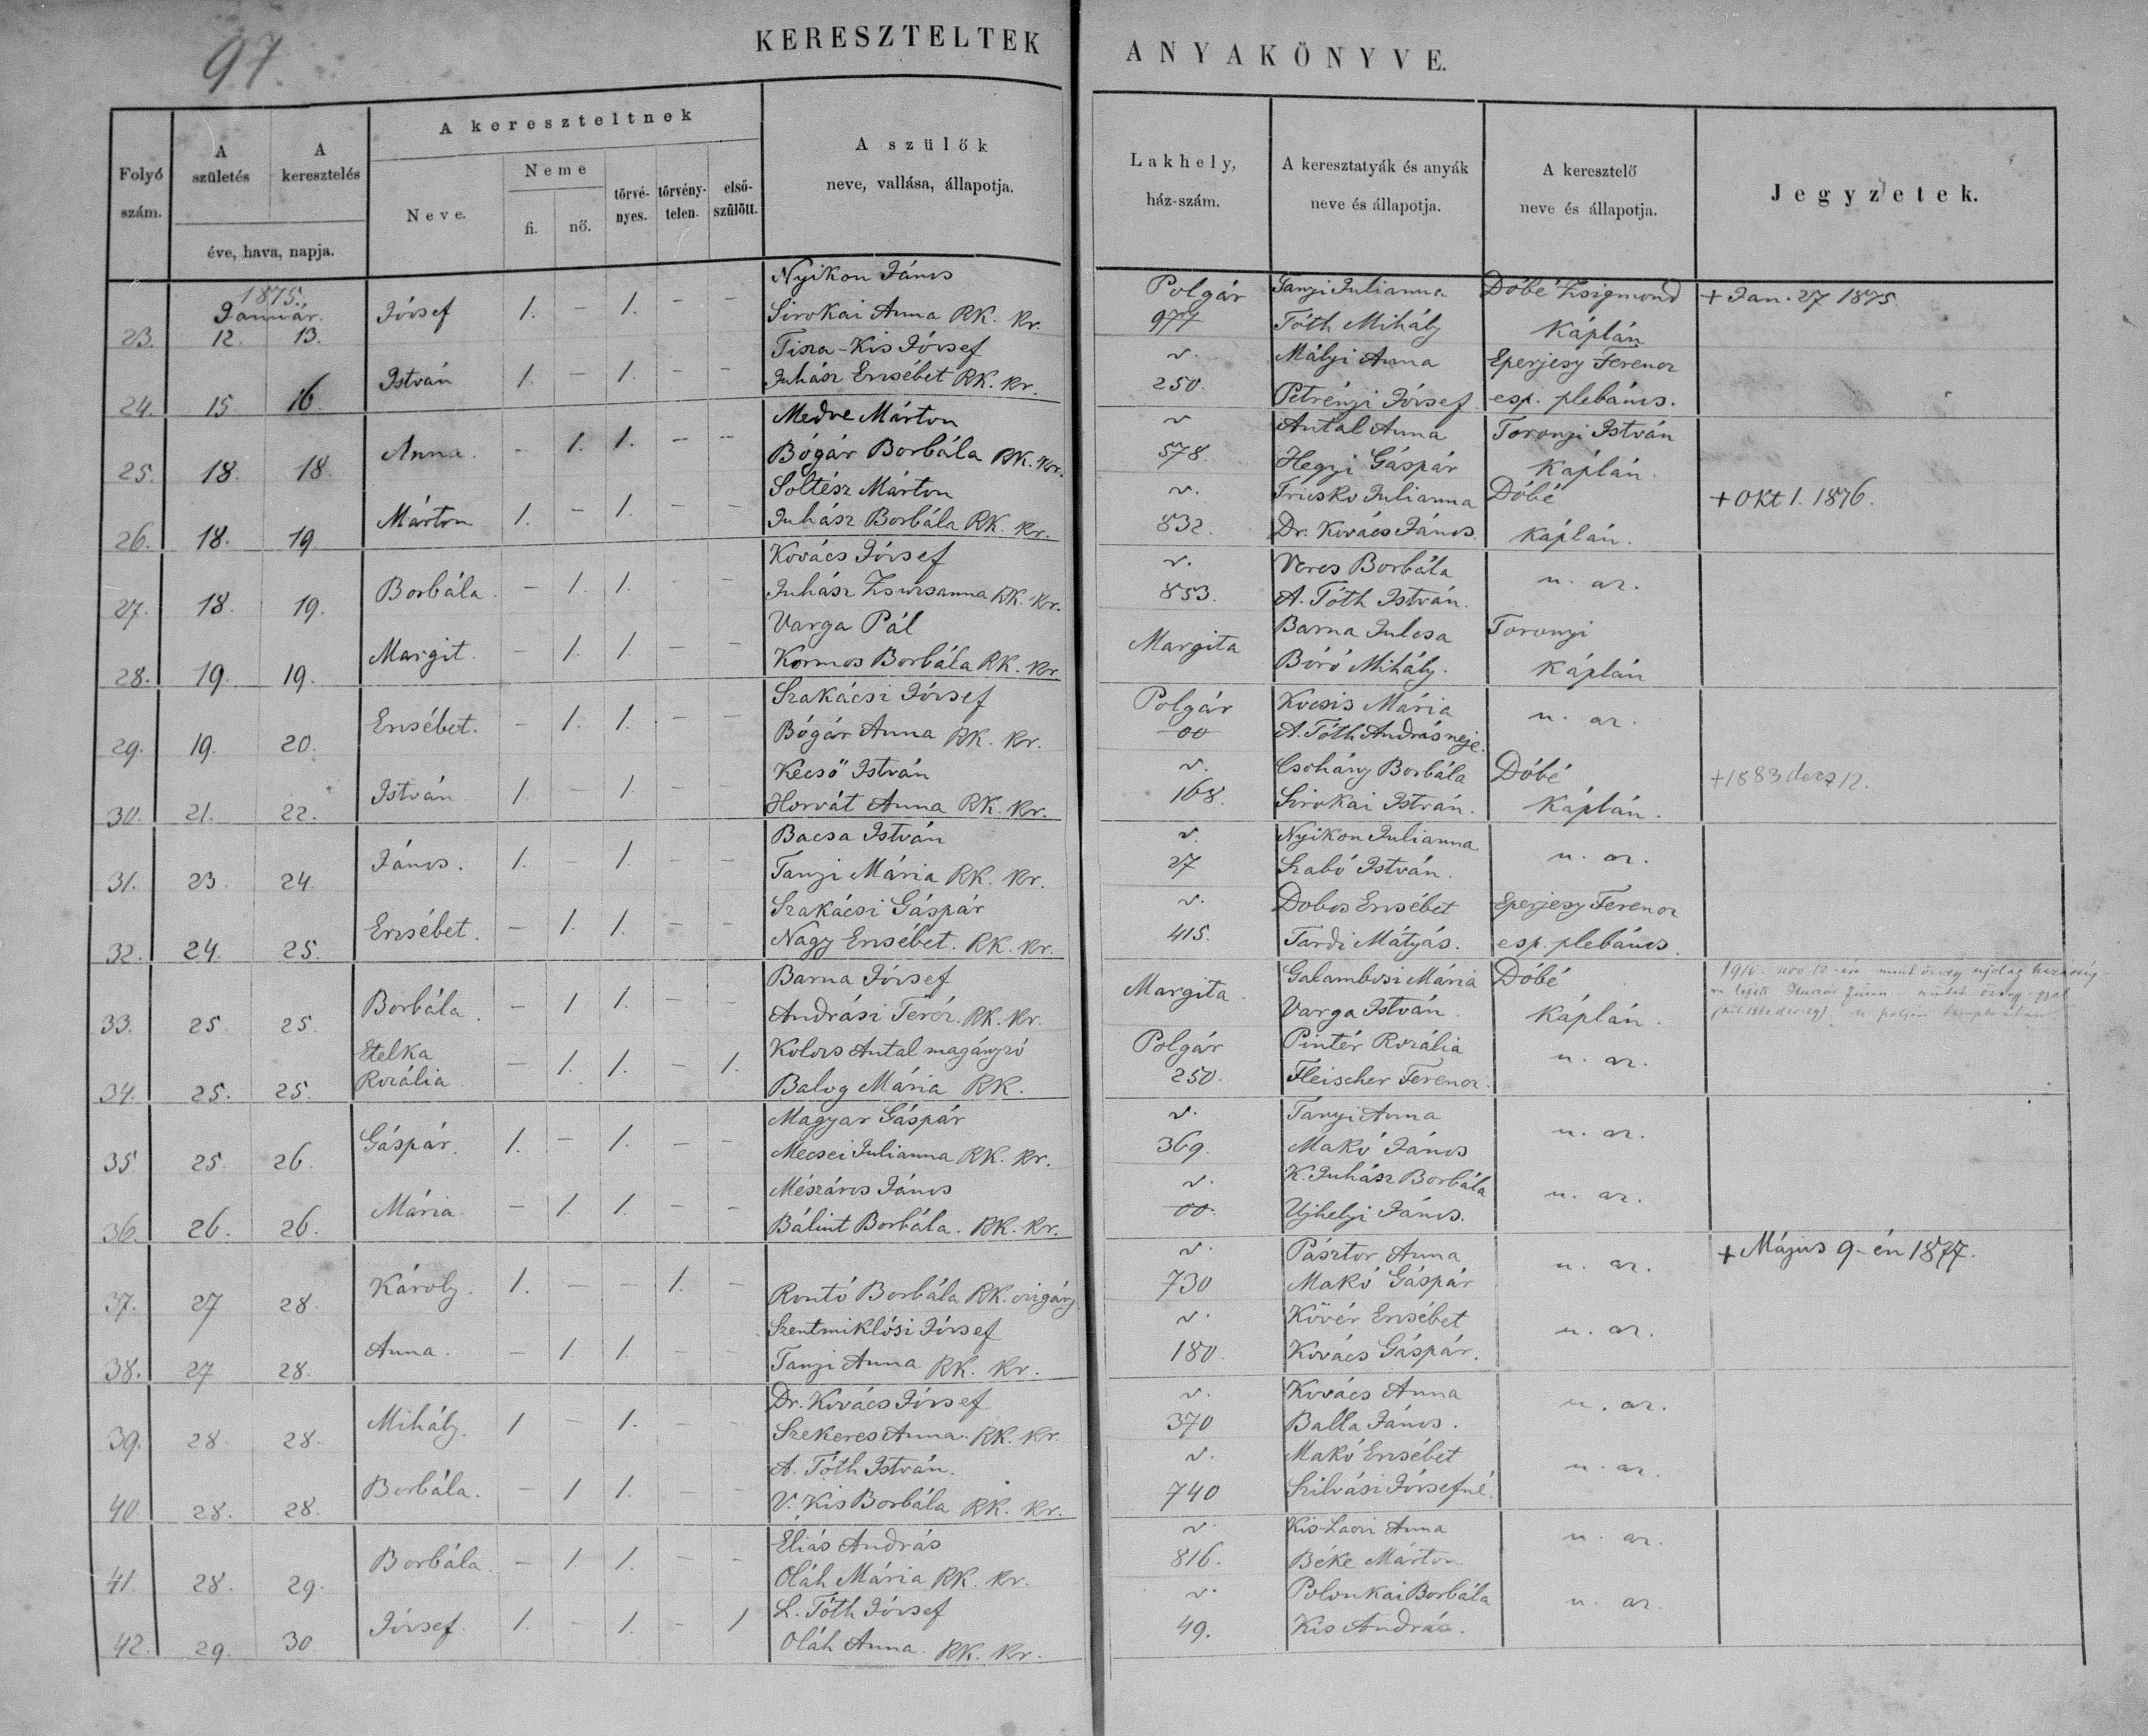 97.
KERESZTELTEK ANYAKÖNYVE.
Folyó szám. | A születés | A keresztelés | éve, hava, napja. | A kereszteltnek | Neve. | Neme | fi. | nő. | törvényes. | törvénytelen. | elsőszülött. | A szülők neve, vallása, állapotja. | Lakhely, ház-szám. | A keresztatyák és anyák neve és állapotja. | A keresztelő neve és állapotja. | Jegyzetek.
1875.
Január.
Nyikon János
23. 12. 13. József 1. – 1. – – Sirokai Anna RK. Kr. Polgár 977 Tanyi Julianna Tóth Mihály Dóbé Zsigmond Káplán + Jan. 27 1875.
Tisza-Kis József
24. 15. 16. István 1. – 1. – – Juhász Ersébet RK. Kr. v. 250. Mályi Anna Petrényi József Eperjesy Ferencz esp. plebános.
Medve Márton
25. 18. 18. Anna. – 1. 1. – – Bógár Borbála RK. Kr. v 578. Antal Anna Hegyi Gáspár Toronyi István Káplán.
Soltész Márton
26. 18. 19. Márton 1. – 1. – – Juhász Borbála RK. Kr. v. 832. Fricsko Julianna Dr. Kovács János. Dóbé káplán. + Okt 1. 1876.
Kovács József
27. 18. 19. Borbála. – 1. 1. – – Juhász Zsuzsanna RK. Kr. v. 853. Veres Borbála A. Tóth István. u. az.
Varga Pál
28. 19. 19. Margit. – 1. 1. – – Kormos Borbála RK. Kr. Margita Barna Julcsa Bíró Mihály. Toronyi Káplán
Szakácsi József
29. 19. 20. Ersébet. – 1. 1. – – Bógár Anna RK. Kr. Polgár 00 Kocsis Mária A. Tóth András neje. u. az.
Kecső István
30. 21. 22. István 1. – 1. – – Horvát Anna RK. Kr. v. 168. Csohány Borbála Sirokai István. Dóbé Káplán. +1883 decz 12.
Bacsa István
31. 23. 24. János. 1. – 1. – – Tanyi Mária RK. Kr. v. 27 Nyikon Julianna Szabó István. u. az.
Szakácsi Gáspár
32. 24. 25. Ersébet. – 1. 1. – – Nagy Ersébet. RK. Kr. v. 415. Dobos Ersébet Tardi Mátyás. Eperjesy Ferencz esp. plebános.
Barna József
33. 25. 25. Borbála. – 1 1. – – Andrási Teréz. RK. Kr. Margita. Galambosi Mária Varga István. Dóbé Káplán.
Kolozs Antal magányzó
34. 25. 25. Etelka Rozália – 1. 1. – 1. Balog Mária RK. Polgár 250. Pintér Rozália Fleischer Ferencz. u. az.
Magyar Gáspár
35 25. 26. Gáspár. 1. – 1. – – Mecsei Julianna RK. Kr. v. 369. Tanyi Anna Makó János u. az.
Mészáros János
36. 26. 26. Mária. – 1. 1. – – Bálint Borbála. RK. Kr. v. 00. K. Juhász Borbála Ujhelyi János. u. az.
37. 27 28. Károly. 1. – – 1. – Rontó Borbála RK. czigány v. 730 Pásztor Anna Makó Gáspár u. az. + Május 9-én 1877.
Szentmiklósi József
38. 27 28. Anna. – 1. 1. – – Tanyi Anna RK. Kr. v. 180. Kövér Ersébet Kovács Gáspár. u. az.
Dr. Kovács József
39. 28. 28. Mihály. 1 – 1. – – Szekeres Anna. RK. Kr. v. 370 Kovács Anna Balla János. u. az.
A. Tóth István.
40. 28. 28. Borbála. – 1 1. – – V. Kis Borbála RK. Kr. v. 740 Makó Ersébet Szilvási Józsefné. u. az.
Eliás András
41. 28. 29. Borbála. – 1. 1. – – Oláh Mária RK. Kr. v. 816. Anna Béke Márton u. az.
L. Tóth József
42. 29. 30. József. 1. – 1. – 1 Oláh Anna. RK. Kr. v. 49. Polonkai Borbála Kis András. u. az.